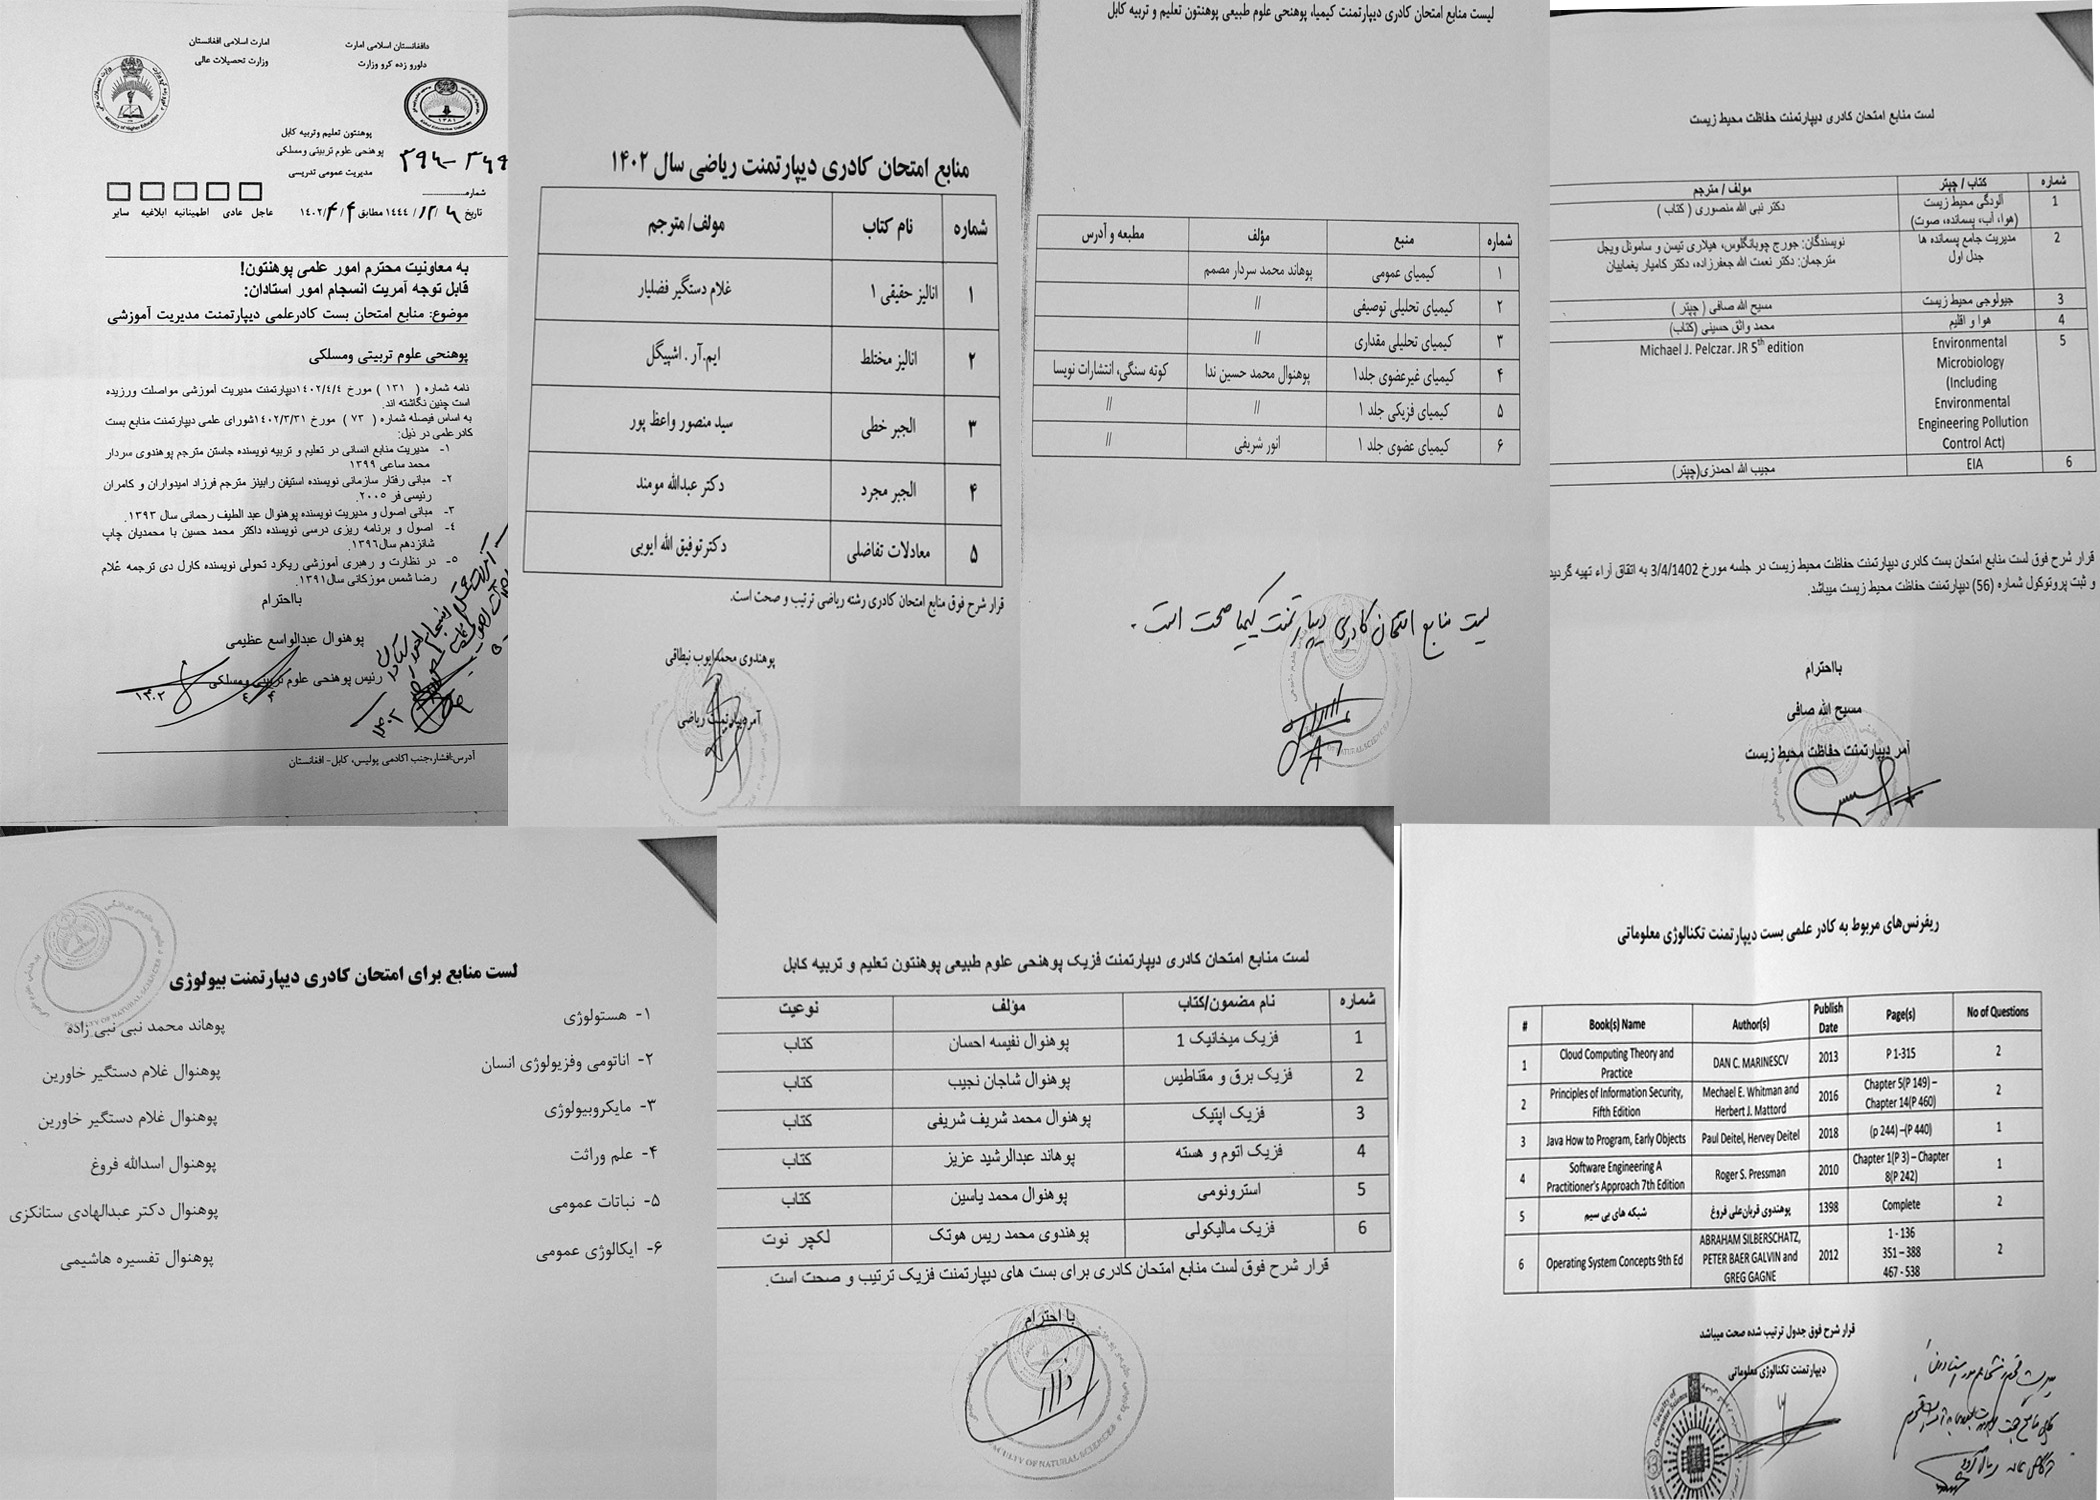 دافغانستان اسلامی امارت
دلورو زده کرو وزارت
امارت اسلامی افغانستان
وزارت تحصیلات عالی
Ministry of Higher Education
پوهنتون تعلیم وتربیه کابل
پوهنحی علوم تربیتی ومسلکی
مدیریت عمومی تدریسی
۳۹۸-۳۶۹
شماره
تاریخ ۶ /۱۲/ ۱۴۴۴ مطابق ۱۴۰۲/۴/۴
عاجل عادی اطمینانیه ابلاغیه سایر
به معاونیت محترم امور علمی پوهنتون!
قابل توجه آمریت انسجام امور استادان:
موضوع: منابع امتحان بست کادرعلمی دیپارتمنت مدیریت آموزشی
پوهنحی علوم تربیتی ومسلکی
نامه شماره ( ۱۳۱ ) مورخ ۱۴۰۲/۴/۴دیپارتمنت مدیریت آموزشی مواصلت ورزیده
است چنین نگاشته اند.
به اساس فیصله شماره ( ۷۳ ) مورخ ۱۴۰۲/۳/۳۱شورای علمی دیپارتمنت منابع بست
کادرعلمی در ذیل:
۱- مدیریت منابع انسانی در تعلیم و تربیه نویسنده جاستن مترجم پوهندوی سردار
محمد ساعی ۱۳۹۹
۲- مبانی رفتار سازمانی نویسنده استیفن رابینز مترجم فرزاد امیدواران و کامران
رئیسی فر ۲۰۰۵.
۳- مبانی اصول و مدیریت نویسنده پوهنوال عبد الطیف رحمانی سال ۱۳۹۳.
۴- اصول و برنامه ریزی درسی نویسنده داکتر محمد حسین با محمدیان چاپ
شانزدهم سال۱۳۹۶.
۵- در نظارت و رهبری آموزشی ریکرد تحولی نویسنده کارل دی ترجمه غلام
رضا شمس موزکانی سال۱۳۹۱.
بااحترام
پوهنوال عبدالواسع عظیمی
رئیس پوهنحی علوم تربیتی ومسلکی
آدرس:افشار،جنب اکادمی پولیس، کابل- افغانستان
منابع امتحان کادری دیپارتمنت ریاضی سال ۱۴۰۲
شماره نام کتاب مولف/ مترجم
۱ انالیز حقیقی ۱ غلام دستگیر فضلیار
۲ انالیز مختلط ایم.آر. اشپیگل
۳ الجبر خطی سید منصور واعظ پور
۴ الجبر مجرد دکتر عبدالله مومند
۵ معادلات تفاضلی دکترتوفیق الله ایوبی
قرار شرح فوق منابع امتحان کادری رشته ریاضی ترتیب و صحت است.
پوهندوی محمدایوب نیطاقی
آمردیپارتمنت ریاضی
لیست منابع امتحان کادری دیپارتمنت کیمیا، پوهنحی علوم طبیعی پوهنتون تعلیم و تربیه کابل
شماره منبع مؤلف مطبعه و آدرس
۱ کیمیای عمومی پوهاند محمد سردار مصمم
۲ کیمیای تحلیلی توصیفی //
۳ کیمیای تحلیلی مقداری //
۴ کیمیای غیرعضوی جلد۱ پوهنوال محمد حسین ندا کوته سنگی، انتشارات نویسا
۵ کیمیای فزیکی جلد ۱ // //
۶ کیمیای عضوی جلد ۱ انور شریفی //
لیست منابع امتحان کادری دیپارتمنت کیمیا صحت است.
لست منابع امتحان کادری دیپارتمنت حفاظت محیط زیست
شماره کتاب / چپتر مولف / مترجم
1 آلودگی محیط زیست دکتر نبی الله منصوری ( کتاب )
(هوا، آب، پسمانده، صوت)
2 مدیریت جامع پسمانده ها نویسندگان: جورج چوبانگلوس، هیلاری تیسن و ساموئل ویجل
جدل اول مترجمان: دکتر نعمت الله جعفرزاده، دکتر کامیار یغماییان
3 جیولوجی محیط زیست مسیح الله صافی ( چپتر )
4 هوا و اقلیم محمد واثق حسینی (کتاب)
5 Environmental Michael J. Pelczar. JR 5th edition
Microbiology
(Including
Environmental
Engineering Pollution
Control Act)
6 EIA مجیب الله احمدزی(چپتر)
قرار شرح فوق لست منابع امتحان بست کادری دیپارتمنت حفاظت محیط زیست در جلسه مورخ 3/4/1402 به اتفاق آراء تهیه گردید
و ثبت پروتوکول شماره (56) دیپارتمنت حفاظت محیط زیست میباشد.
بااحترام
مسیح الله صافی
آمر دیپارتمنت حفاظت محیط زیست
لست منابع برای امتحان کادری دیپارتمنت بیولوژی
۱- هستولوژی پوهاند محمد نبی نبی زاده
۲- اناتومی وفزیولوژی انسان پوهنوال غلام دستگیر خاورین
۳- مایکروبیولوژی پوهنوال غلام دستگیر خاورین
۴- علم وراثت پوهنوال اسدالله فروغ
۵- نباتات عمومی پوهنوال دکتر عبدالهادی ستانکزی
۶- ایکالوژی عمومی پوهنوال تفسیره هاشیمی
لست منابع امتحان کادری دیپارتمنت فزیک پوهنحی علوم طبیعی پوهنتون تعلیم و تربیه کابل
شماره نام مضمون/کتاب مؤلف نوعیت
1 فزیک میخانیک 1 پوهنوال نفیسه احسان کتاب
2 فزیک برق و مقناطیس پوهنوال شاجان نجیب کتاب
3 فزیک اپتیک پوهنوال محمد شریف شریفی کتاب
4 فزیک اتوم و هسته پوهاند عبدالرشید عزیز کتاب
5 استرونومی پوهنوال محمد یاسین کتاب
6 فزیک مالیکولی پوهندوی محمد ریس هوتک لکچر نوت
قرار شرح فوق لست منابع امتحان کادری برای بست های دیپارتمنت فزیک ترتیب و صحت است.
با احترام
FACULTY OF NATURAL SCIENCES
ریفرنس‌های مربوط به کادر علمی بست دیپارتمنت تکنالوژی معلوماتی
# Book(s) Name Author(s) Publish Date Page(s) No of Questions
1 Cloud Computing Theory and Practice DAN C. MARINESCV 2013 P 1-315 2
2 Principles of Information Security, Fifth Edition Mechael E. Whitman and Herbert J. Mattord 2016 Chapter 5(P 149) – Chapter 14(P 460) 2
3 Java How to Program, Early Objects Paul Deitel, Hervey Deitel 2018 (p 244) –(P 440) 1
4 Software Engineering A Practitioner's Approach 7th Edition Roger S. Pressman 2010 Chapter 1(P 3) – Chapter 8(P 242) 1
5 شبکه های بی سیم پوهندوی قربان‌علی فروغ 1398 Complete 2
6 Operating System Concepts 9th Ed ABRAHAM SILBERSCHATZ, PETER BAER GALVIN and GREG GAGNE 2012 1 - 136 351 – 388 467 - 538 2
قرار شرح فوق جدول ترتیب شده صحت میباشد
دیپارتمنت تکنالوژی معلوماتی